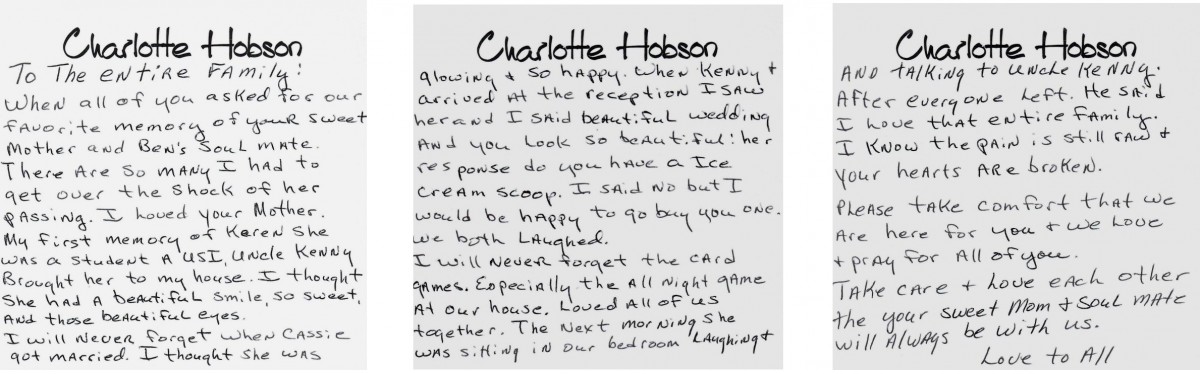 Charlotte Hobson
To The entire Family:
When all of you asked for our
favorite memory of your sweet
Mother and Ben's Soul mate.
There Are So many I had to
get over the shock of her
passing. I loved your Mother.
My first memory of Karen she
was a student A USI, Uncle Kenny
Brought her to my house. I thought
She had a beautiful smile, so sweet,
And those beautiful eyes.
I will never forget when Cassie
got married. I thought she was
Charlotte Hobson
glowing + so happy. When Kenny +
arrived at the reception I saw
her and I said beautiful wedding
And you look so beautiful! her
response do you have a Ice
Cream scoop. I said no but I
would be happy to go buy you one.
we both laughed.
I will never forget the card
games. Especially the all night game
At our house. Loved all of us
together. The next morning she
was sitting in our bedroom laughing +
Charlotte Hobson
And talking to uncle Kenny.
After everyone left. He said
I love that entire family.
I know the pain is still raw +
your hearts are broken.
Please take comfort that we
Are here for you + we love
+ pray for all of you.
Take care + love each other
the your sweet mom + soul mate
will always be with us.
Love to All